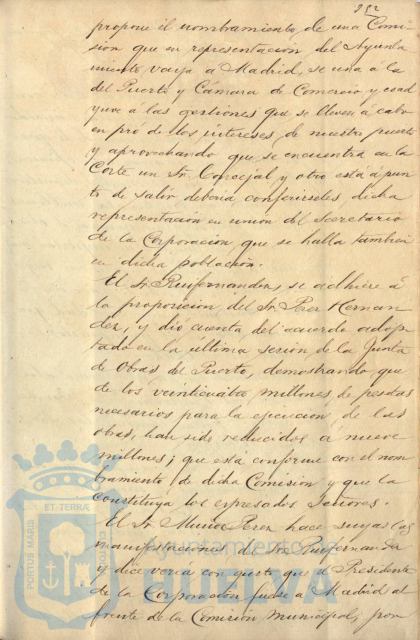 252
propone el nombramiento de una Comi-
sion que en representacion del Ayunta
miento vaya á Madrid, se una á la
del Puerto y Cámara de Comercio y coad
yuve á las gestiones que se lleven á cabo
en pró de los intereses de nuestro puerto
y aprovechando que se encuentra en la
Corte un Sr. Concejal y otro está á pun
to de salir deberia conferirseles dicha
representacion en union del Secretario
de la Corporacion que se halla tambien
en dicha poblacion.
El Sr. Ruifernandez, se adhiere á
la proposicion del Sr. Perez Hernan
dez, y dió cuenta del acuerdo adop
tado en la última sesion de la Junta
de Obras del Puerto, demostrando que
de los veinticuatro millones de pesetas
necesarios para la ejecucion de las
obras, han sido reducidos á nueve
millones; que está conforme con el nom
bramiento de dicha Comision y que la
constituya los expresados Señores.
El Sr. Muñoz Perez hace suyas las
manifestaciones del Sr. Ruifernandez
y dice veria con gusto que el Presidente
de la Corporacion fuese á Madrid al
frente de la Comision municipal, pron
PORTUS MARIS ET TERRÆ
Ayuntamiento de
HUELVA